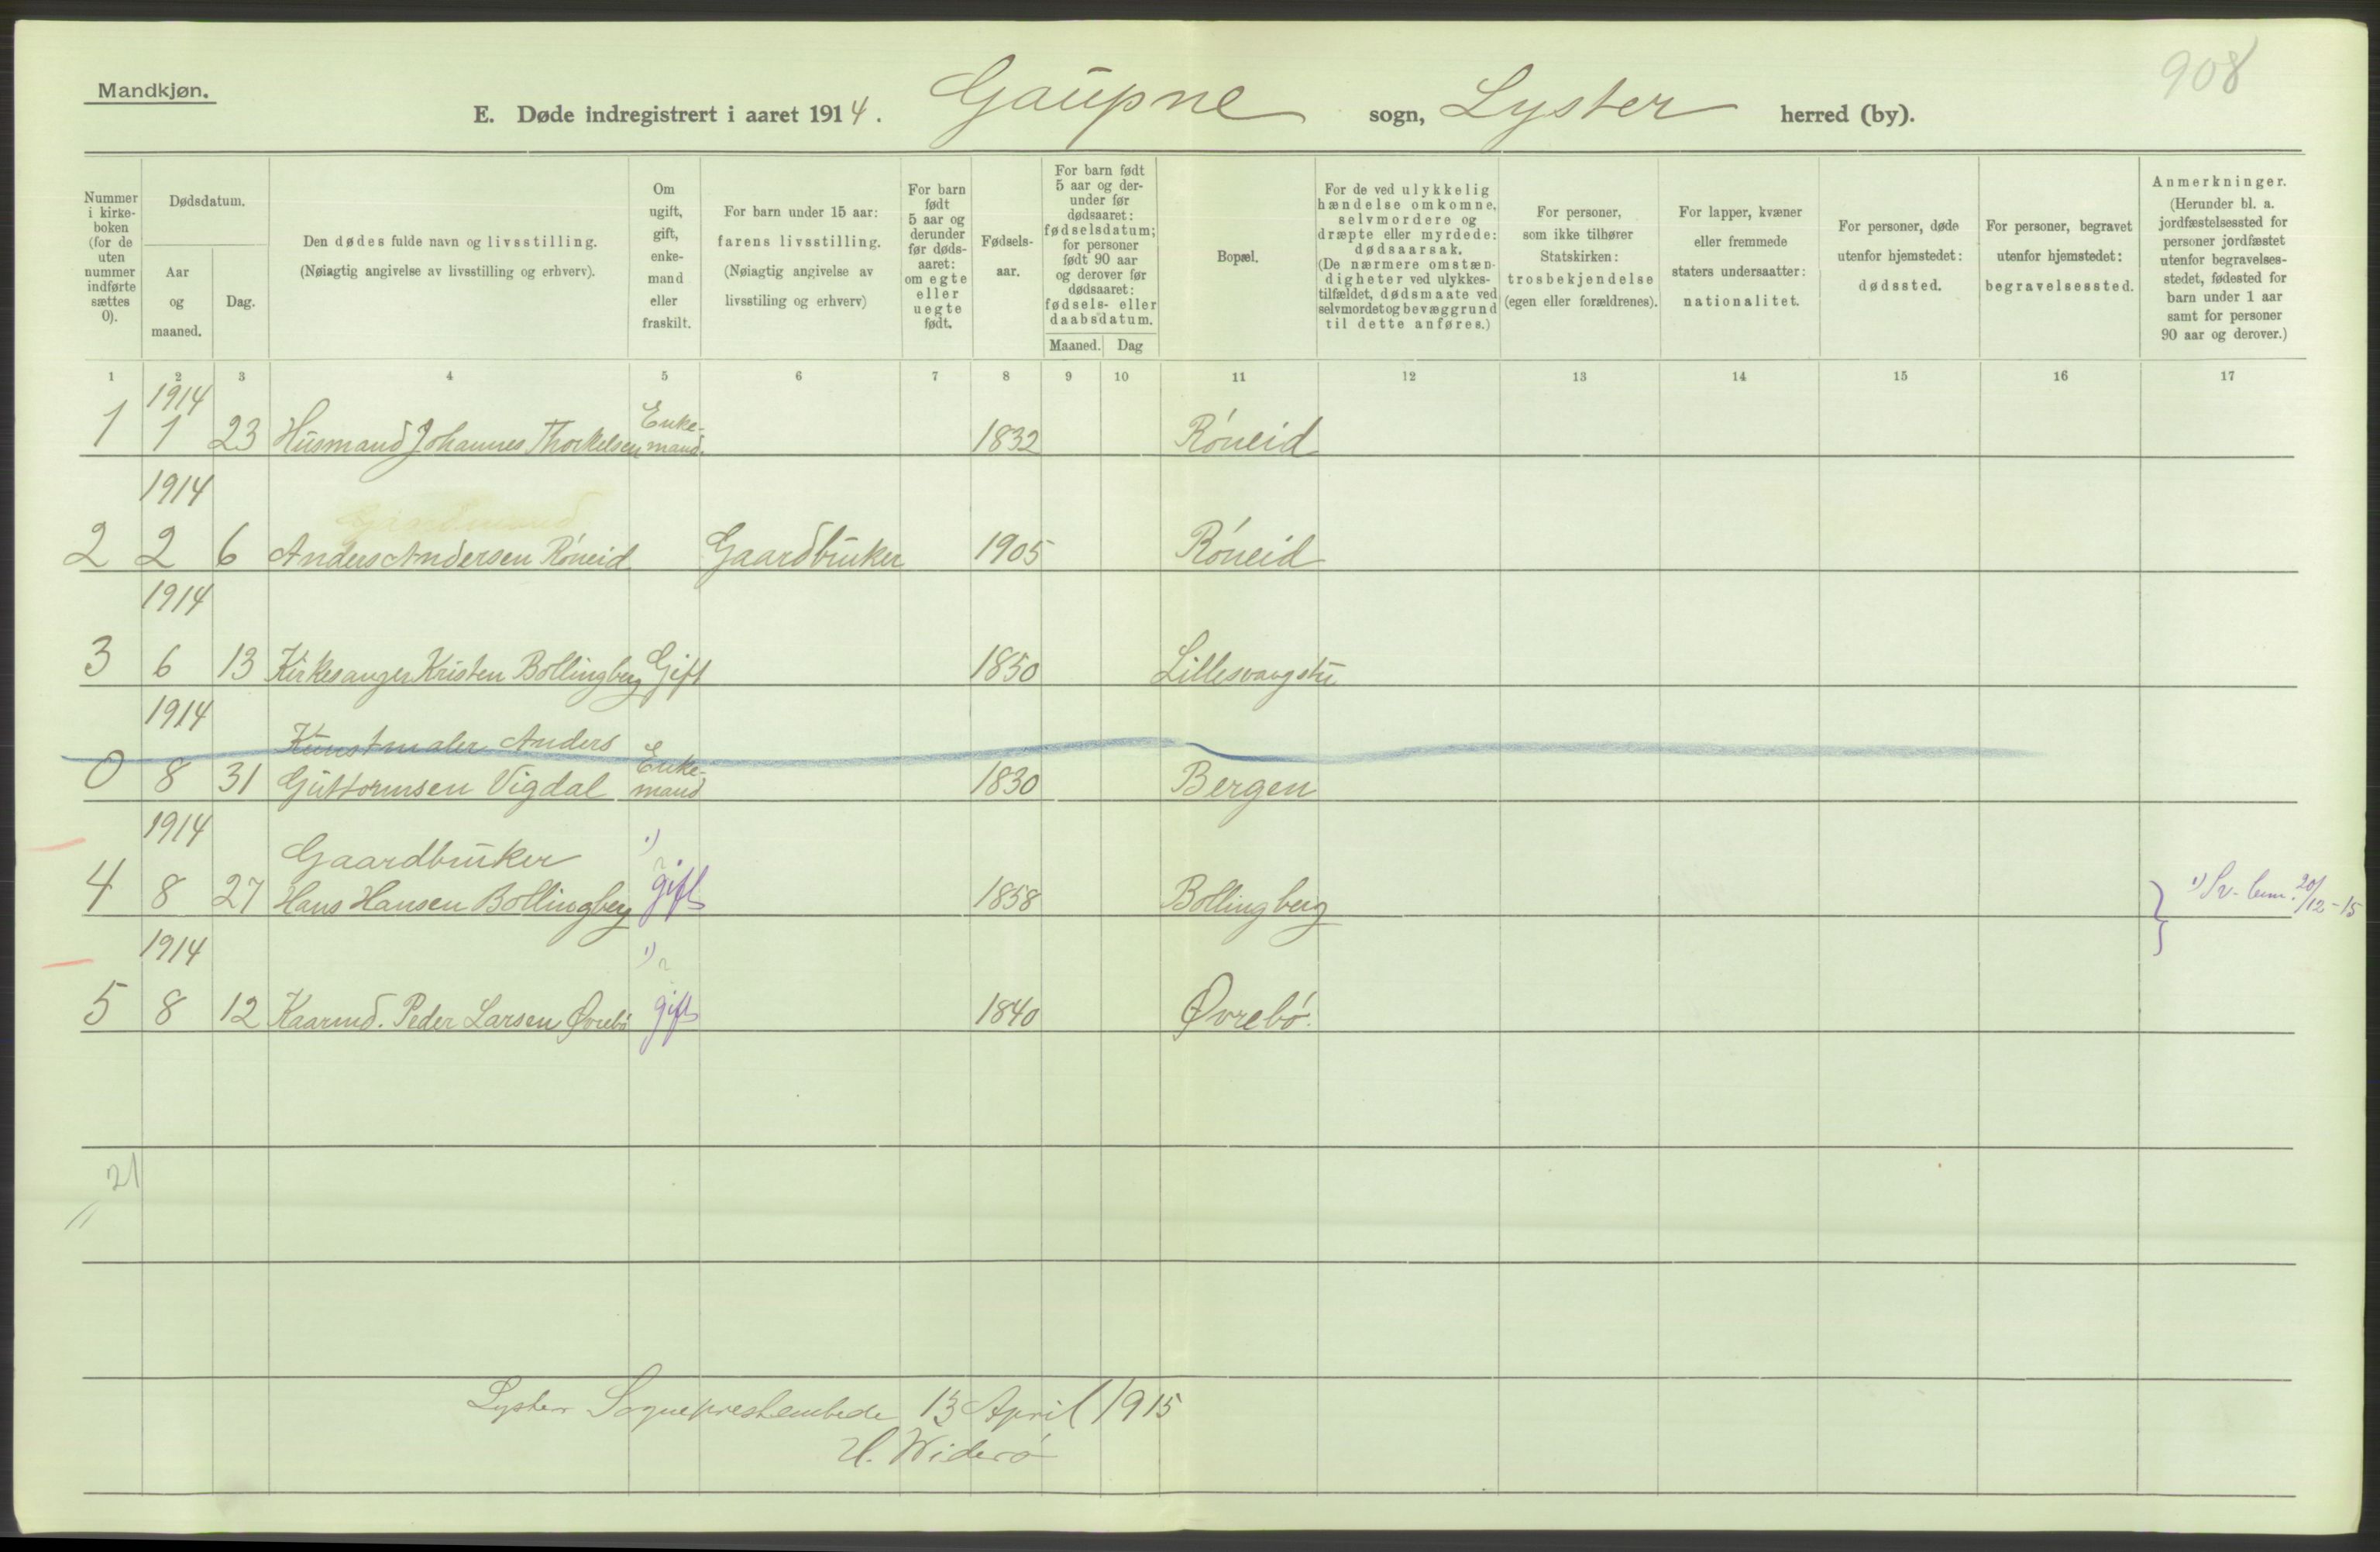 908
Mandkjøn.
E. Døde indregistrert i aaret 1914. Gaupne sogn, Lyster herred (by).
Nummer i kirke- boken (for de uten nummer indførte sættes 0).
Dødsdatum.
Aar og maaned.
Dag.
Den dødes fulde navn og livsstilling.
(Nøiagtig angivelse av livsstilling og erhverv).
Om ugift, gift, enke- mand eller fraskilt.
For barn under 15 aar: farens livsstilling.
(Nøiagtig angivelse av livsstiling og erhverv)
For barn født 5 aar og derunder før døds- aaret: om egte eller uegte født.
Fødsels- aar.
For barn født 5 aar og der- under før dødsaaret: fødselsdatum; for personer født 90 aar og derover før dødsaaret: fødsels- eller daabsdatum.
Maaned. Dag
Bopæl.
For de ved ulykkelig hændelse omkomne, selvmordere og dræpte eller myrdede: dødsaarsak.
(De nærmere omstæn- digheter ved ulykkes- tilfældet, dødsmaate ved selvmordet og bevæggrund til dette anføres.)
For personer, som ikke tilhører Statskirken: trosbekjendelse (egen eller forældrenes).
For lapper, kvæner eller fremmede staters undersaatter: nationalitet.
For personer, døde utenfor hjemstedet: dødssted.
For personer, begravet utenfor hjemstedet: begravelsessted.
Anmerkninger.
(Herunder bl. a. jordfæstelsessted for personer jordfæstet utenfor begravelses- stedet, fødested for barn under 1 aar samt for personer 90 aar og derover.)
1 2 3 4 5 6 7 8 9 10 11 12 13 14 15 16 17
1914
1 1 23 Husmand Johannes Thorkelsen Enke- mand. 1832 Róneid
1914
Gaardmand
2 2 6 Anders Andersen Róneid Gaardbruker 1905 Róneid
1914
3 6 13 Kirkesanger Kristen Bollingberg Gift 1850 Lillesvangstu
1914
Kunstmaler Anders
0 8 31 Guttormsen Vigdal Enke- mand 1830 Bergen
1914
Gaardbruker 1)
4 8 27 Hans Hansen Bollingberg gift 1858 Bollingberg 1) Sv. 20/12-15
1914 1)
5 8 12 Kaarmd. Peder Larsen Øvrebó gift 1840 Øvrebó.
21
Lyster Sogneprestembede 13 April 1915
H. Wideró